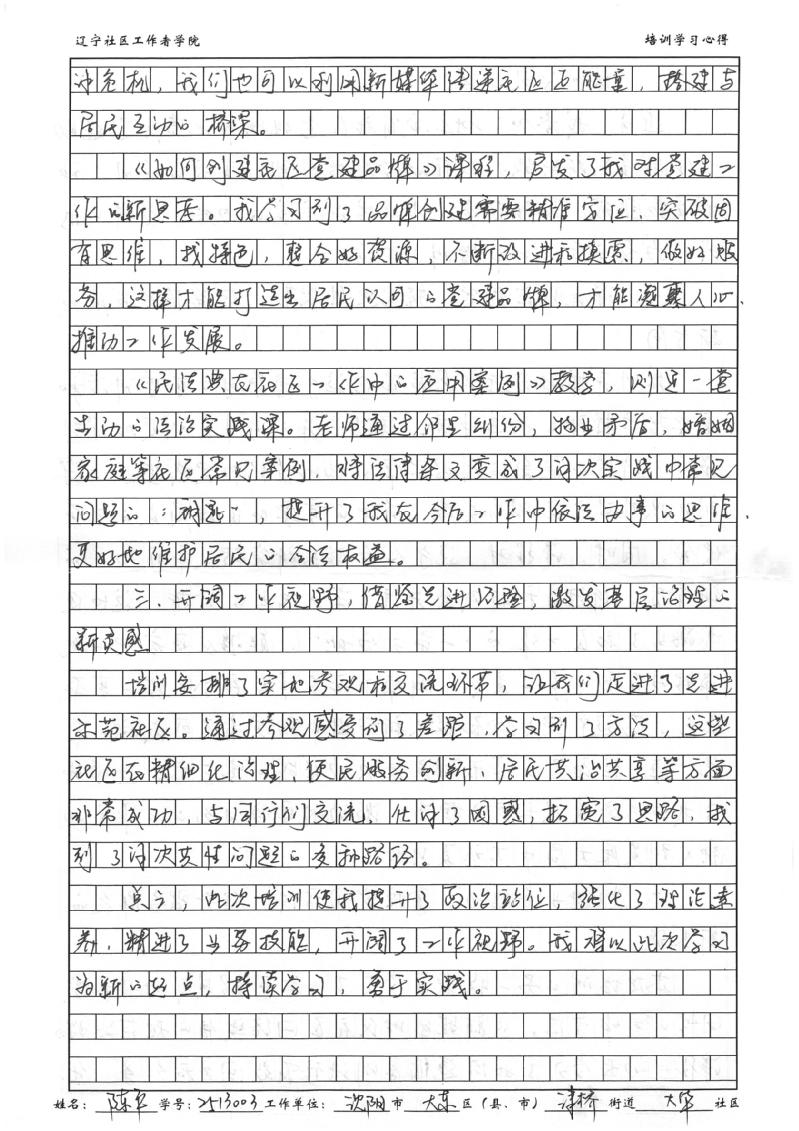 辽宁社区工作者学院 培训学习心得
冲危机，我们也可以利用新媒体传递社区正能量，搭建与
居民互动的桥梁。
《如何创建社区党建品牌》课程，启发了我对党建工
作的新思考。我学习到了品牌创建需要精准定位、突破固
有思维，找特色，整合好资源，不断改进和摸索，做好服
务，这样才能打造出居民认可的党建品牌，才能凝聚人心、
推动工作发展。
《民法典在社区工作中的应用案例》教学，则是一堂
生动的法治实践课。老师通过邻里纠份，物业矛盾，婚姻
家庭等社区常见案例，将法律条文变成了解决实践中常见
问题的“钥匙”，提升了我在今后工作中依法办事的思维，
更好地维护居民的合法权益。
三、开阔工作视野，借鉴先进经验，激发基层治理的
新灵感
培训安排了实地参观和交流环节，让我们走进了先进
示范社区。通过参观感受到了差距，学习到了方法，这些
社区在精细化治理、便民服务创新、居民共治共享等方面
非常成功，与同行们交流，化解了困惑，拓宽了思路，找
到了解决共性问题的多种路径。
总之，此次培训使我提升了政治站位，强化了理论素
养，精进了业务技能，开阔了工作视野。我将以此次学习
为新的起点，持续学习，勇于实践。
姓名：陈 学号：2513003 工作单位：沈阳市 大东区（县、市） 津桥街道 大华社区